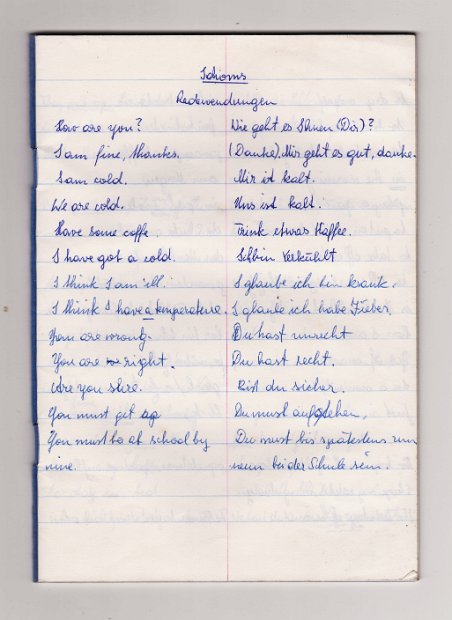 Idioms
Redewendungen
How are you? Wie geht es Ihnen (Dir)?
I am fine, thanks. (Danke). Mir geht es gut, danke.
I am cold. Mir ist kalt.
We are cold. Uns ist kalt.
Have some coffe Trink etwas Kaffee.
I have got a cold. Ich bin verkühlt
I think I am ill. I glaube ich bin krank.
I think I have a temperature. I glaube ich habe Fieber.
You are wrong. Du hast unrecht
You are right. Du hast recht.
Are you shre. Bist du sicher.
You must get up Du must aufstehen.
You must be at school by Du must bis spätestens um
nine. neun bei der Schule sein.